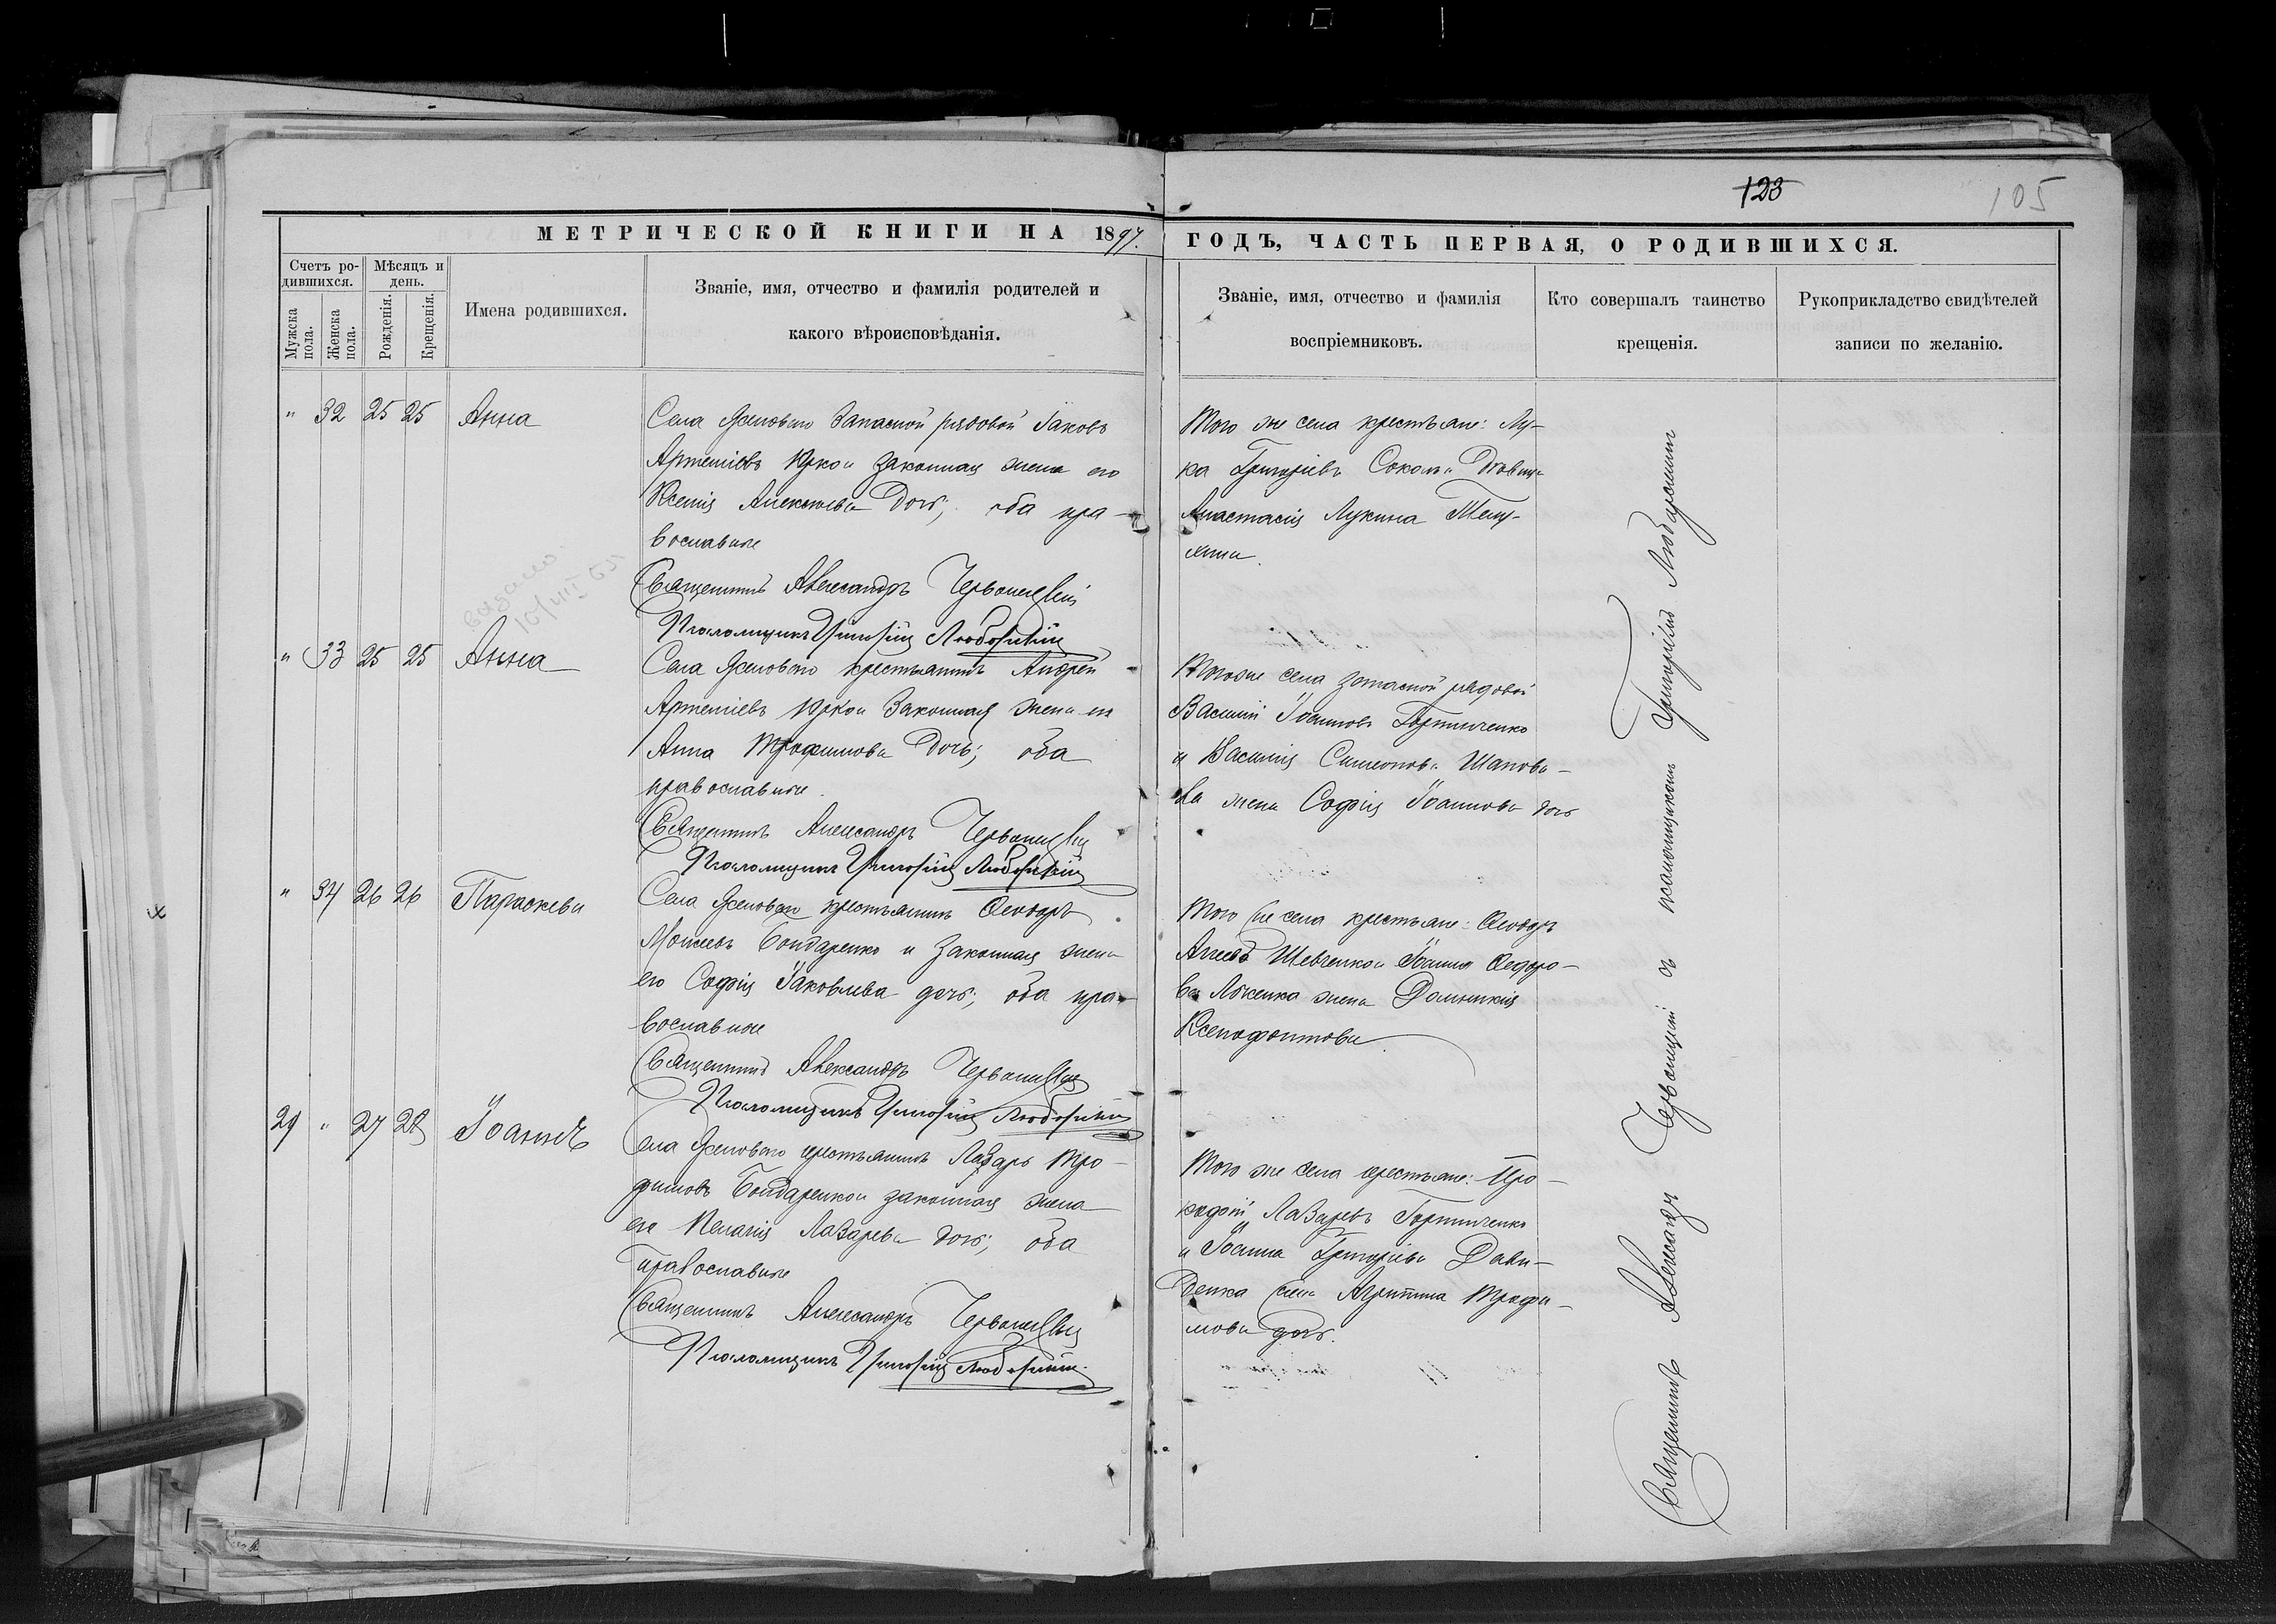 123
105
МЕТРИЧЕСКОЙ КНИГИ НА 1897.
ГОДЪ, ЧАСТЬ ПЕРВАЯ, О РОДИВШИХСЯ.
Счетъ ро-
дившихся.
Мужска пола.
Женска пола.
Мѣсяцъ и
день.
Рожденія.
Крещенія.
Имена родившихся.
Званіе, имя, отчество и фамилія родителей и
какого вѣроисповѣданія.
Званіе, имя, отчество и фамилія
воспріемниковъ.
Кто совершалъ таинство
крещенія.
Рукоприкладство свидѣтелей
записи по желанію.
" 32 25 25 Анна
Села запасной рядовой Іаковъ
Артеміевъ законная жена его
Ксенія Алексіева дочь; оба пра-
вославные
Священникъ Александръ Червонецкій
Псаломщикъ Григорій
Того же села крестьяне: Лу-
ка Григоріевъ
Анастасія Лукина
10/VIII 65
" 33 25 25 Анна
Села крестьянинъ Андрей
Артеміевъ законная жена его
Анна Трофимова дочь; оба
православные.
Священникъ Александръ Червонецкій
Псаломщикъ Григорій
Тогоже села запасной рядовой
Василій Іоанновъ Гортинченко
и Василія Симеонова Шапова-
ла жена Софія Іоаннова дочь
" 34 26 26 Параскева
Села крестьянинъ Ѳеодоръ
Моисеевъ Бондаренко и законная жена
его Софія Іаковлева дочь; оба пра-
вославные
Священникъ Александръ Червонецкій
Псаломщикъ Григорій
Того же села крестьяне: Ѳеодоръ
Аггеевъ Шевченко и Іоанна Ѳедоро-
ва жена Домникія
Ксенофонтова
29 " 27 28 Іоаннъ
Села крестьянинъ Лазарь Тро-
фимовъ Бондаренко и законная жена
его Пелагія Лазарева дочь; оба
православные
Священникъ Александръ Червонецкій
Псаломщикъ Григорій
Того же села крестьяне: Про-
кофій Лазаревъ Гортинченко
и Іоанна Григоріева Дави-
денка жена Агрипина Трофи-
мова дочь.
Священникъ Александръ Червонецкій съ псаломщикомъ Григоріемъ